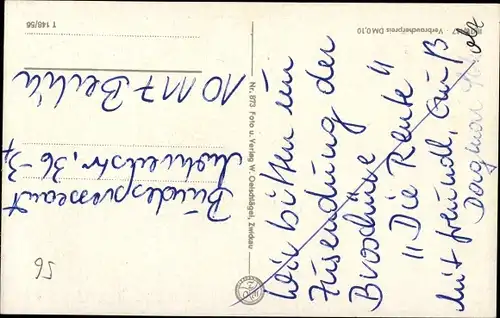 Wir bitten um
Zusendung der
Broschüre
"Die Rente"
Mit freundl. Gruß
Dagmar
Bundespresseamt
36-37
10117 Berlin
Nr. 873 Foto u. Verlag W. Geschlägel, Zwickau
Verbraucherpreis DM 0,10
T 148/56
56